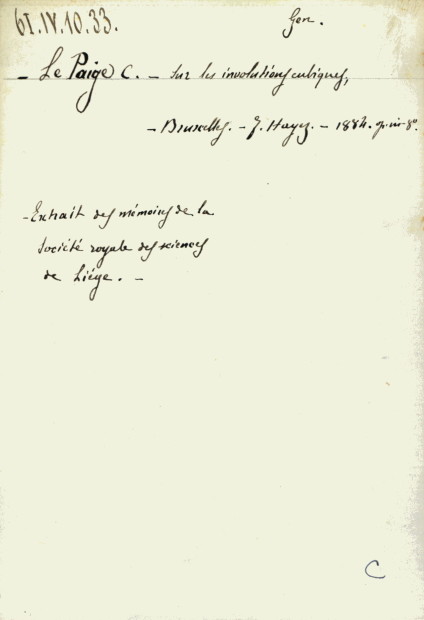 61.IV.10.33.
Gen.
- Le Paige C. - Sur les involutions cubiques,
- Bruxelles. - F. Hayez. - 1884. op. in-8°.
- Extrait des mémoires de la
Société royale des sciences
de Liége. -
C